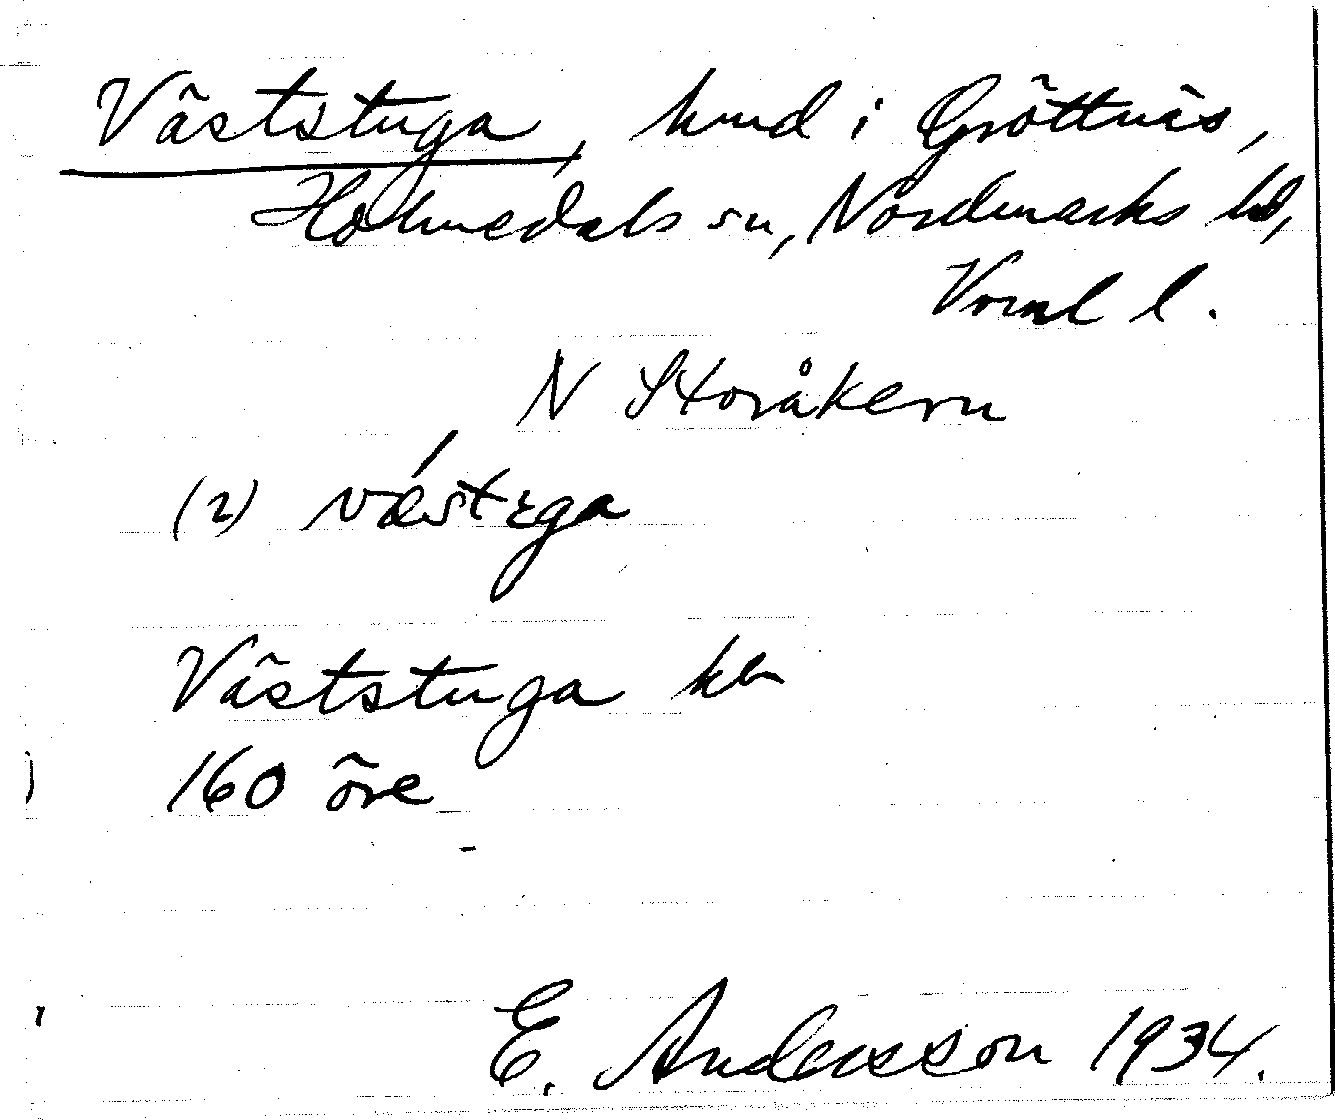 Väststuga, hmd i Gröttnäs,
Holmedals sn, Nordmarks hd,
Vrml l.
N Storåkern
(2) væ̀stɛga
Väststuga
160 öre
E. Andersson 1934.